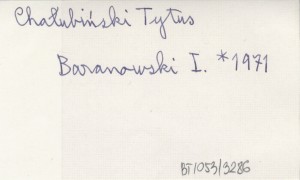 Chałubiński Tytus
Baranowski I. *1971
BT/053/9286